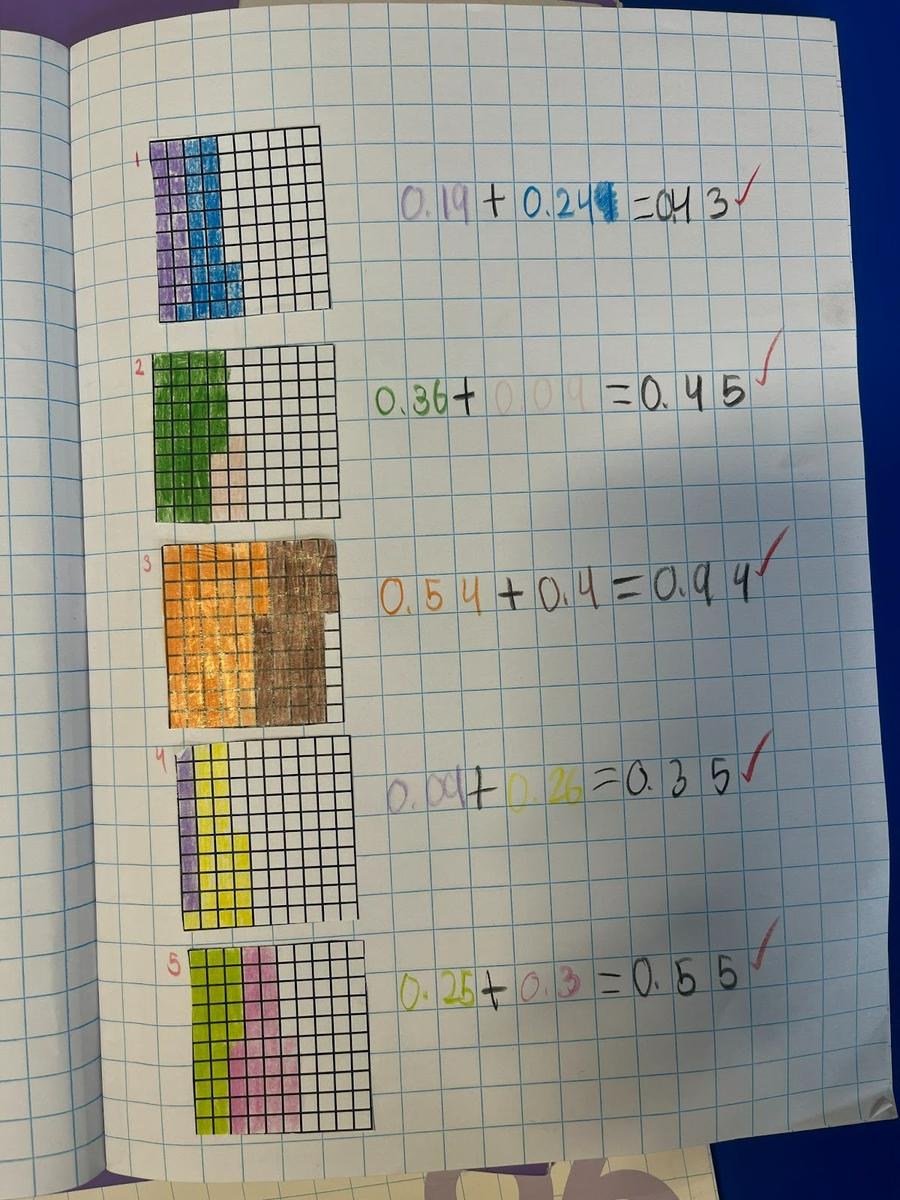 1 0.19 + 0.24 = 0.43
2 0.36 + 0.09 = 0.45
3 0.54 + 0.4 = 0.94
4 0.09 + 0.26 = 0.35
5 0.25 + 0.3 = 0.55